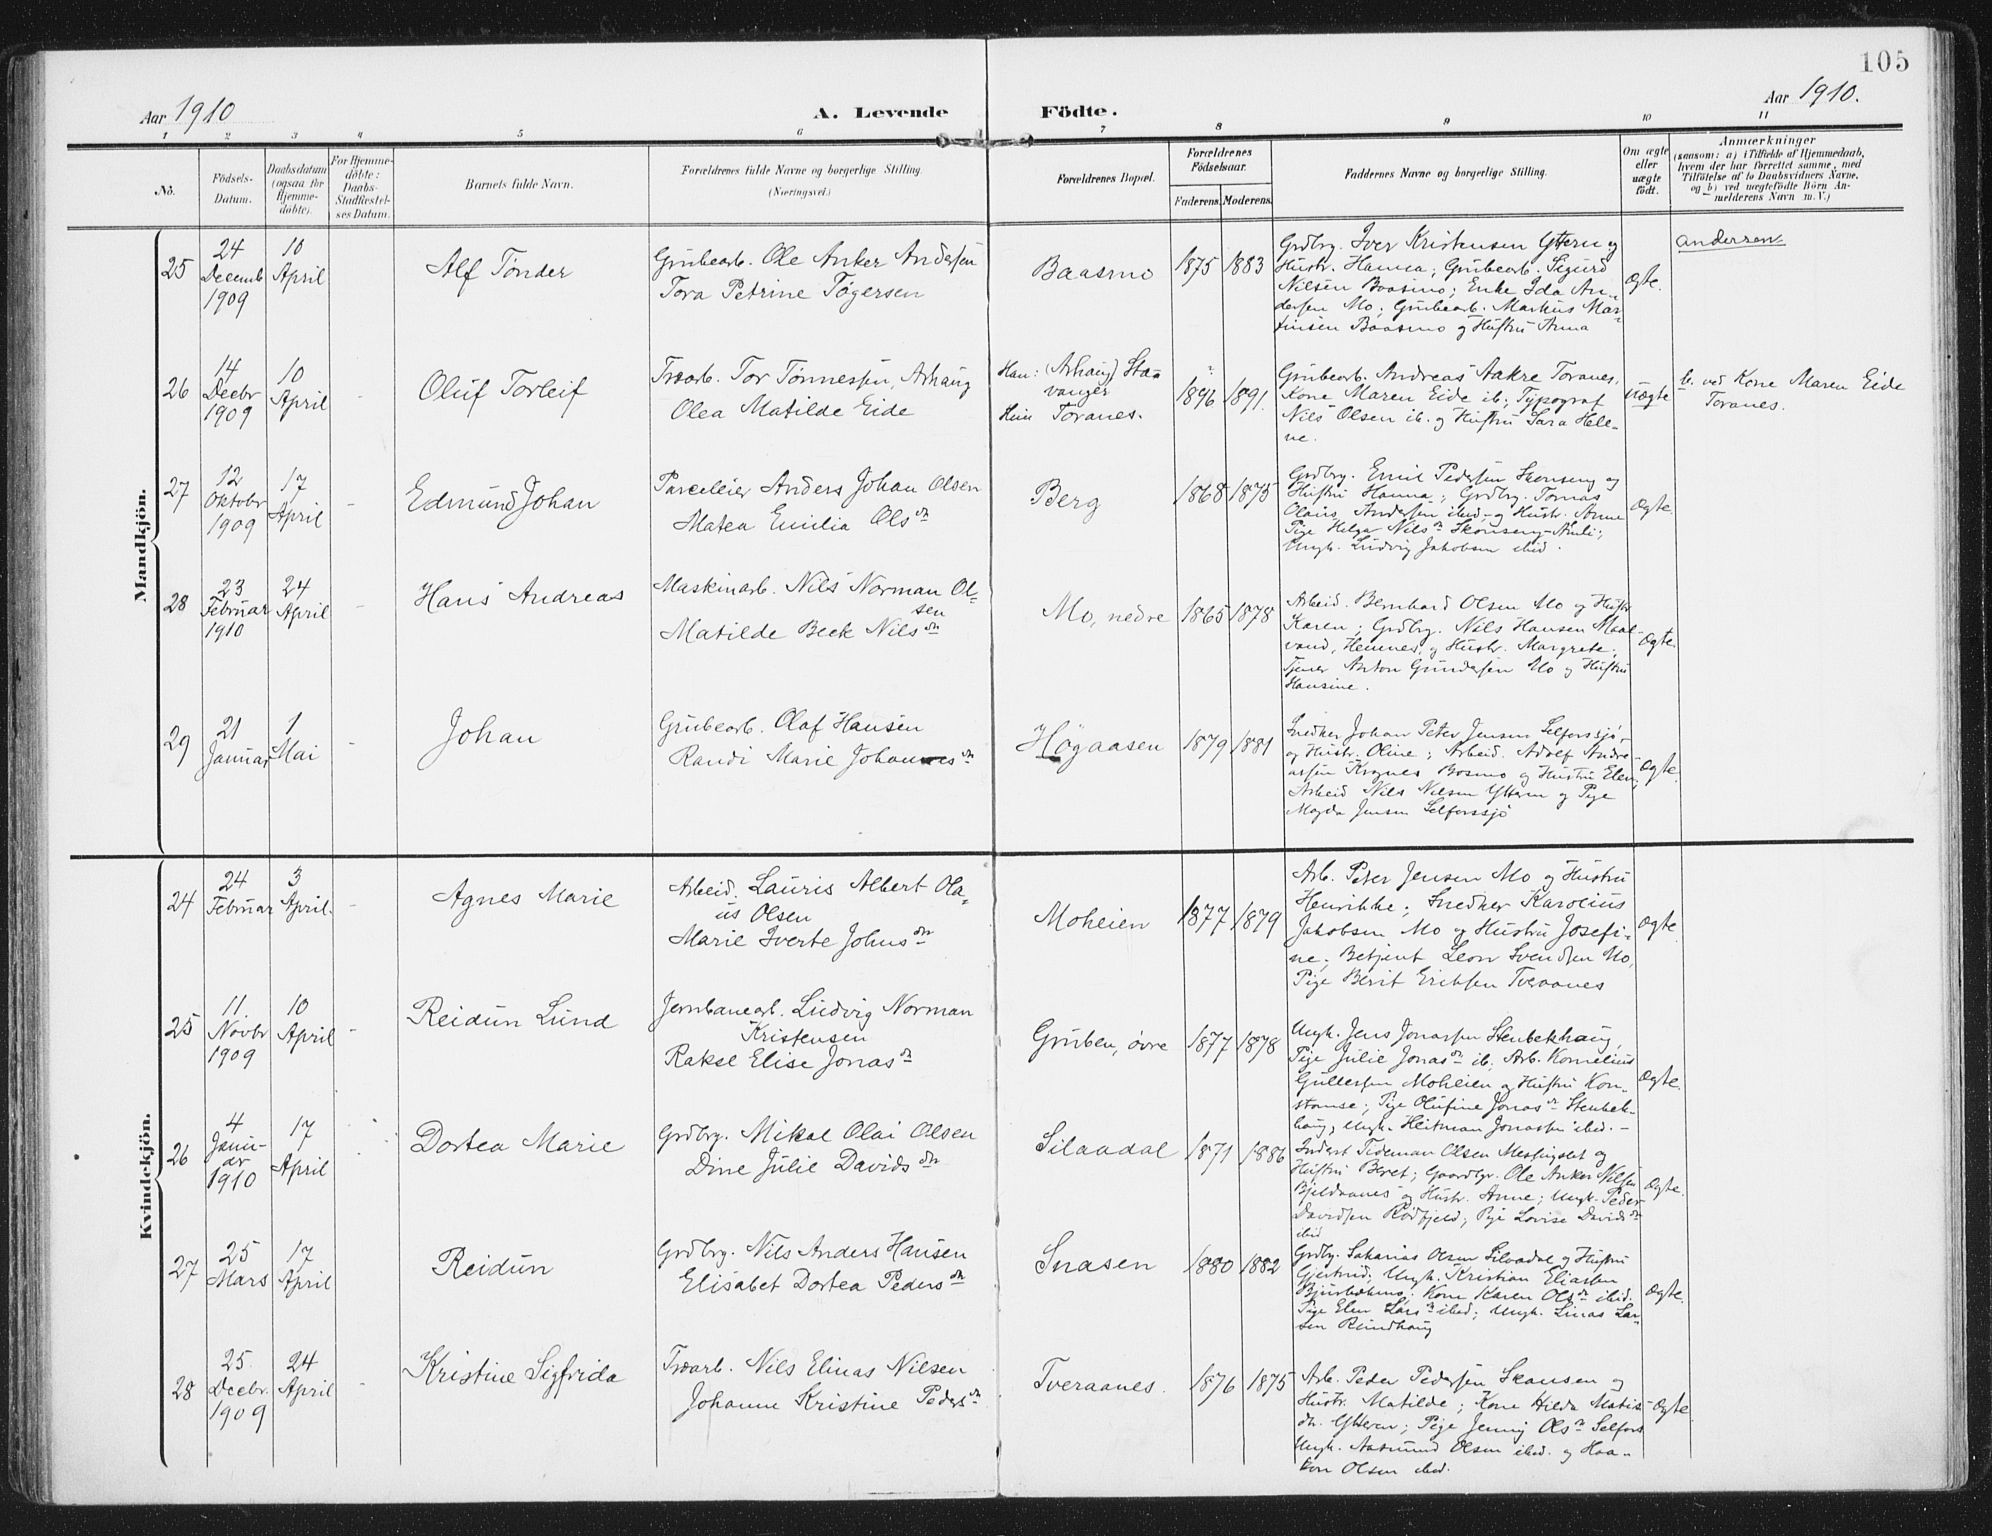 105
Aar 1910
A. Levende Födte.
Aar 1910.
1 2 3 4 5 6 7 8 9 10 11
No.
Födsels-
Datum.
Daabsdatum
(ogsaa for
Hjemme-
døbte).
For Hjemme-
døbte:
Daabs-
Stadfæstel-
ses Datum.
Barnets fulde Navn.
Forældrenes fulde Navne og borgerlige Stilling.
(Næringsvei.)
Forældrenes Bopæl.
Forældrenes
Fødselsaar.
Faderens. Moderens.
Faddernes Navne og borgerlige Stilling.
Om ægte
eller
uægte
født.
Anmærkninger
(saasom: a) i Tilfælde af Hjemmedaab,
hvem der har forrettet samme, med
Tilföielse af to Daabsvidners Navne,
og b) ved uægtefödte Börn An-
melderens Navn m. V.)
Mandkjön.
25
24
Decemb
1909
10
April
Alf Tønder
Grubearb. Ole Anker Andersen
Tora Petrine Tøgersen
Baasmo
1875 1883
Grdbrg. Iver Kristensen Yttern og
Hustr. Hanna; Grubearb. Sigurd
Nilsen Baasmo; Enke Ida An-
dersen Mo; Grubearb. Markus Mar-
tinsen Baasmo og Hustru Anna
Ægte.
Andersen
26
14
Decbr
1909
10
April
Oluf Torleif
Træarb. Tor Tønnesen, Arhaug
Olea Matilde Eide
Han: (Arhaug) Sta-
vanger
Hun Toranes.
1896 1891.
Grubearb. Andreas Aakre Toranes,
Kone Maren Eide ib.; Typograf
Nils Olsen ib. og Hustru Sara Hele-
ne.
Uægte
b. ved Kone Maren Eide
Toranes.
27
12
Oktobr
1909
17
April
Edmund Johan
Parceleier Anders Johan Olsen
Matea Emilia Olsdtr
Berg
1868 1875
Grdbrg. Emil Pedersen Skonseng og
Hustru Hanna; Grdbrg. Tomas
Olaus Andersen ibid. og Hustr. Anne
Pige Helga Nilsdtr Skonseng-Anli;
Ungk. Ludvig Jakobsen ibid.
Ægte.
28
23
Februar
1910
24
April
Hans Andreas
Maskinarb. Nils Norman Ol-
sen
Matilde Beck Nilsdtr
Mo, nedre
1865 1878
Arbeid. Bernhard Olsen Mo og Hustr.
Karen; Grdbrg. Nils Hansen Maal-
vand, Hemnes, og Hustr. Margrete;
Tjener Anton Gundersen Mo og Hustru
Hansine.
Ægte.
29
21
Januar
1
Mai
Johan
Grubearb. Olaf Hansen
Randi Marie Johannesdtr
Høgaasen
1879 1881
Snedker Johan Peter Jensen Selforssjø
og Hustr. Oline; Arbeid. Adolf Andre-
assen Bosmo og Hustru Elen;
Arbeid Nils Nilsen Yttern og Pige
Magda Jensen Selforssjø
Ægte.
Kvindekjön.
24
24
Februar
3
April.
Agnes Marie
Arbeid. Lauris Albert Ola-
us Olsen
Marie Iverte Johnsdtr
Moheien
1877 1879
Arb. Peter Jensen Mo og Hustru
Henrikke; Snedker Karolius
Jakobsen Mo og Hustru Josefi-
ne; Betjent Leon Svendsen Mo,
Pige Berit Eriksen Tveraanes
Ægte
25
11.
Novbr
1909
10
April
Reidun Lund
Jernbanearb. Ludvig Norman
Kristensen
Raksel Elise Jonasdtr
Gruben, øvre
1877 1878
Ungk. Jens Jonassen Stenbekhaug,
Pige Julie Jonasdtr ib. Arb. Kornelius
Gullersen Moheien og Hustru Kon-
stanse; Pige Olufine Jonasdtr Stenbek-
haug, Ungk. Heitman Jonassen ibid. -
Ægte.
26
4
Janu-
ar
1910
17
April
Dortea Marie
Grdbrg. Mikal Olai Olsen
Dine Julie Davidsdtr
Silaadal
1871 1886
Inderst Tideman Olsen Messingslet og
Hustru Beret; Gaardbr. Ole Anker Nilsen
Bjeldaanes og Hustr. Anne; Ungk. Peder
Davidsen Rødfjeld; Pige Lovise Davidsdtr
ibid
Ægte.
27
25
Mars
17
April
Reidun
Grdbrg. Nils Anders Hansen
Elisabet Dortea Pedersdtr
Snasen
1880 1882
Grdbrg. Sakarias Olsen Silaadal og Hustru
Gjertrud; Ungk. Kristian Eliassen
Bjurbækmo; Kone Karen Olsdtr ibid.
Pige Elen Larsdtr ibid; Ungk. Linas Lar-
sen Rundhaug
Ægte.
28
25
Decbr.
1909
24
April
Kristine Sigfrida
Træarb. Nils Elinas Nilsen
Johanne Kristine Pedersdtr
Tveraanes.
1876 1875
Arb. Peder Pedersen Skansen og
Hustr. Matilde; Kone Hilda Matis-
dtr. Yttern; Pige Jenny Olsdtr Selfors
Ungk. Aasmund Olsen ibid. og Haa-
kon Olsen ibid.
Ægte.